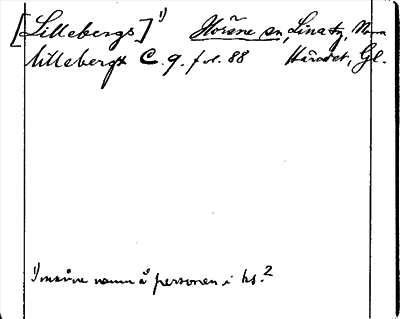 [Lillebergs] 1) Horsne sn, Lina tg, Norra
Lillebergs C. 9. fol. 88 Häradet, Gl.
1) snarare namn å personen i hs.?